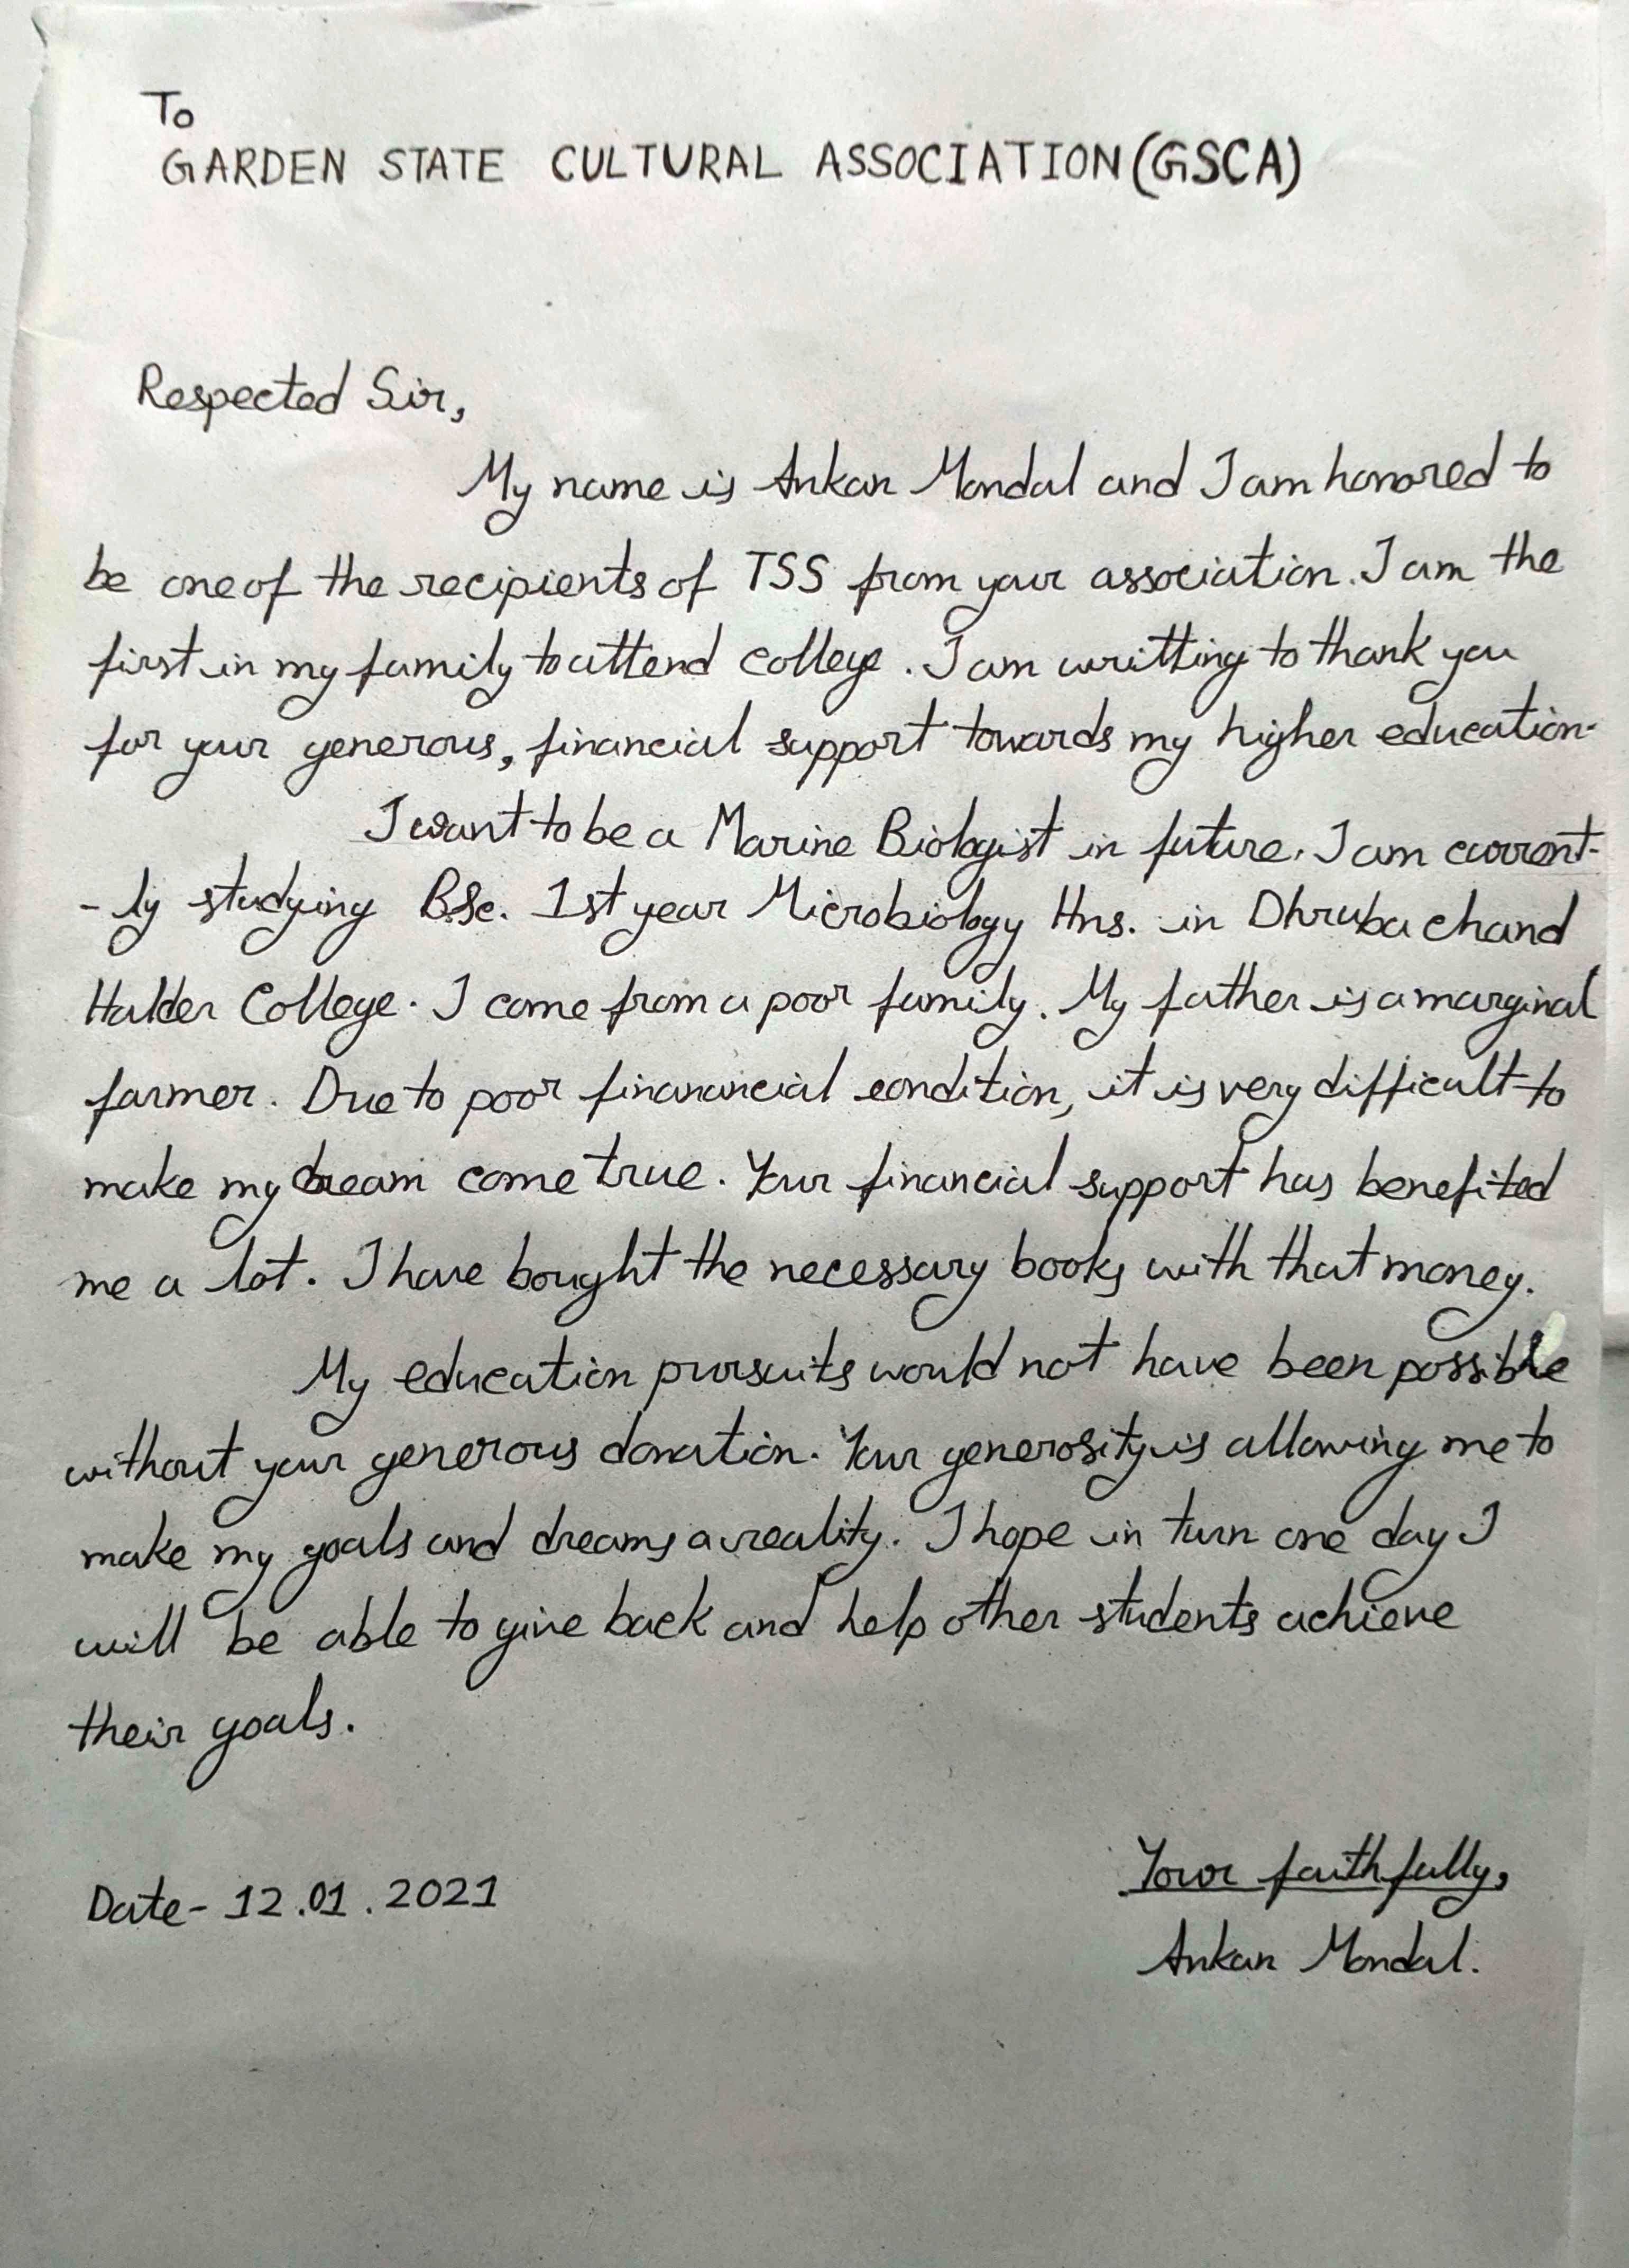 To
GARDEN STATE CULTURAL ASSOCIATION (GSCA)
Respected Sir,
My name is Ankan Mondal and I am honored to
be one of the recipients of TSS from your association. I am the
first in my family to attend college. I am writting to thank you
for your generous, financial support towards my higher education.
I want to be a Marine Biologist in future. I am current-
- ly studying B.Sc. 1st year Microbiology Hns. in Dhruba chand
Halder College. I come from a poor family. My father is a marginal
farmer. Due to poor finanancial condition, it is very difficult to
make my dream come true. Your financial support has benefited
me a lot. I have bought the necessary books with that money.
My education pursuits would not have been possible
without your generous donation. Your generosity is allowing me to
make my goals and dreams a reality. I hope in turn one day I
will be able to give back and help other students achieve
their goals.
Your faithfully,
Date- 12.01.2021
Ankan Mondal.